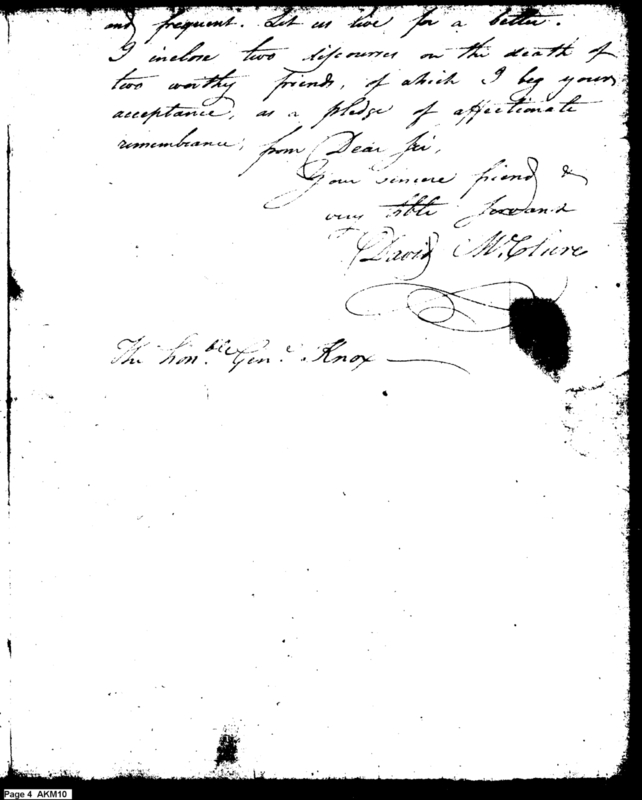 and frequent. Let us live for a better.
I inclose two discourses on the death of
two worthy friends, of which I beg your
acceptance, as a pledge of affectionate
remembrance; from Dear Sir,
Your sincere friend &
very Hble Servant
David McClure
The honble Genl Knox
Page 4 AKM10